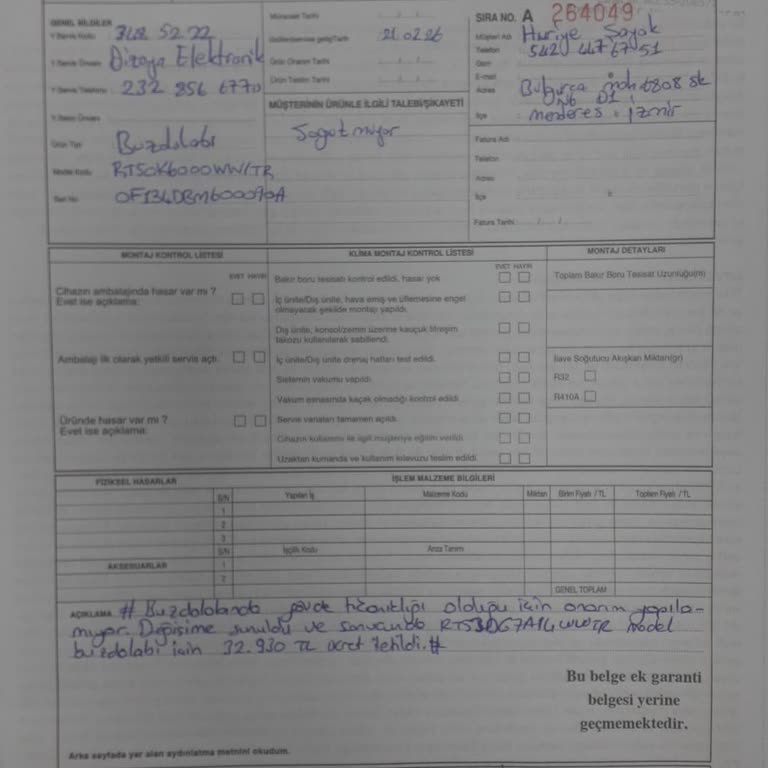 GENEL BİLGİLER
Y.Servis Kodu : 3482 52 22
Y.Servis Ünvanı : Dizaya Elektronik
Y.Servis Telefonu : 232 856 6770
Ürün Tipi : Buzdolabı
Model Kodu : RT50K6000WW/TR
Seri No
Müracaat Tarihi
21.02.26
Ürün Onarım Tarihi
Ürün Teslim Tarihi
MÜŞTERİNİN ÜRÜNLE İLGİLİ TALEBİ/ŞİKAYETİ
Soğutmuyor
SIRA NO. A 264049
Müşteri Adı : Huriye
Telefon : 542 447 67 51
Gsm
E-mail
Adres : mah 7808 sk
N6 D1
İlçe : menderes . izmir
Fatura Adı
Telefon
Adres
İlçe
Fatura Tarihi
MONTAJ KONTROL LİSTESİ
EVET HAYIR
Cihazın ambalajında hasar var mı ?
Evet ise açıklama:
Ambalaj ilk olarak yetkili servis açtı.
Üründe hasar var mı ?
Evet ise açıklama:
KLİMA MONTAJ KONTROL LİSTESİ
EVET HAYIR
Bakır boru tesisatı kontrol edildi, hasar yok
İç ünite/Dış ünite, hava emiş ve üflemesine engel
olmayacak şekilde montajı yapıldı.
Dış ünite, konsol/zemin üzerine kauçuk titreşim
takozu kullanılarak sabitlendi.
İç ünite/Dış ünite drenaj hatları test edildi.
Sistemin vakumu yapıldı.
Vakum esnasında kaçak olmadığı kontrol edildi
Servis vanaları tamamen açıldı.
Cihazın kullanımı ile ilgili müşteriye eğitim verildi.
Uzaktan kumanda ve kullanım kılavuzu teslim edildi.
MONTAJ DETAYLARI
Toplam Bakır Boru Tesisat Uzunluğu(m)
İlave Soğutucu Akışkan Miktarı(gr)
R32
R410A
FİZİKSEL HASARLAR
AKSESUARLAR
İŞLEM MALZEME BİLGİLERİ
S/N Yapılan İş Malzeme Kodu Miktarı Birim Fiyatı / TL Toplam Fiyatı / TL
1
2
3
S/N İşçilik Kodu Arıza Tanımı
1
2
GENEL TOPLAM
AÇIKLAMA # Buzdolabında gövde tıkanıklığı olduğu için onarım yapıla-
mıyor. Değişime sunuldu ve model
buzdolabı için 32.930 TL ücret iletildi.#
Bu belge ek garanti
belgesi yerine
geçmemektedir.
Arka sayfada yer alan aydınlatma metnini okudum.